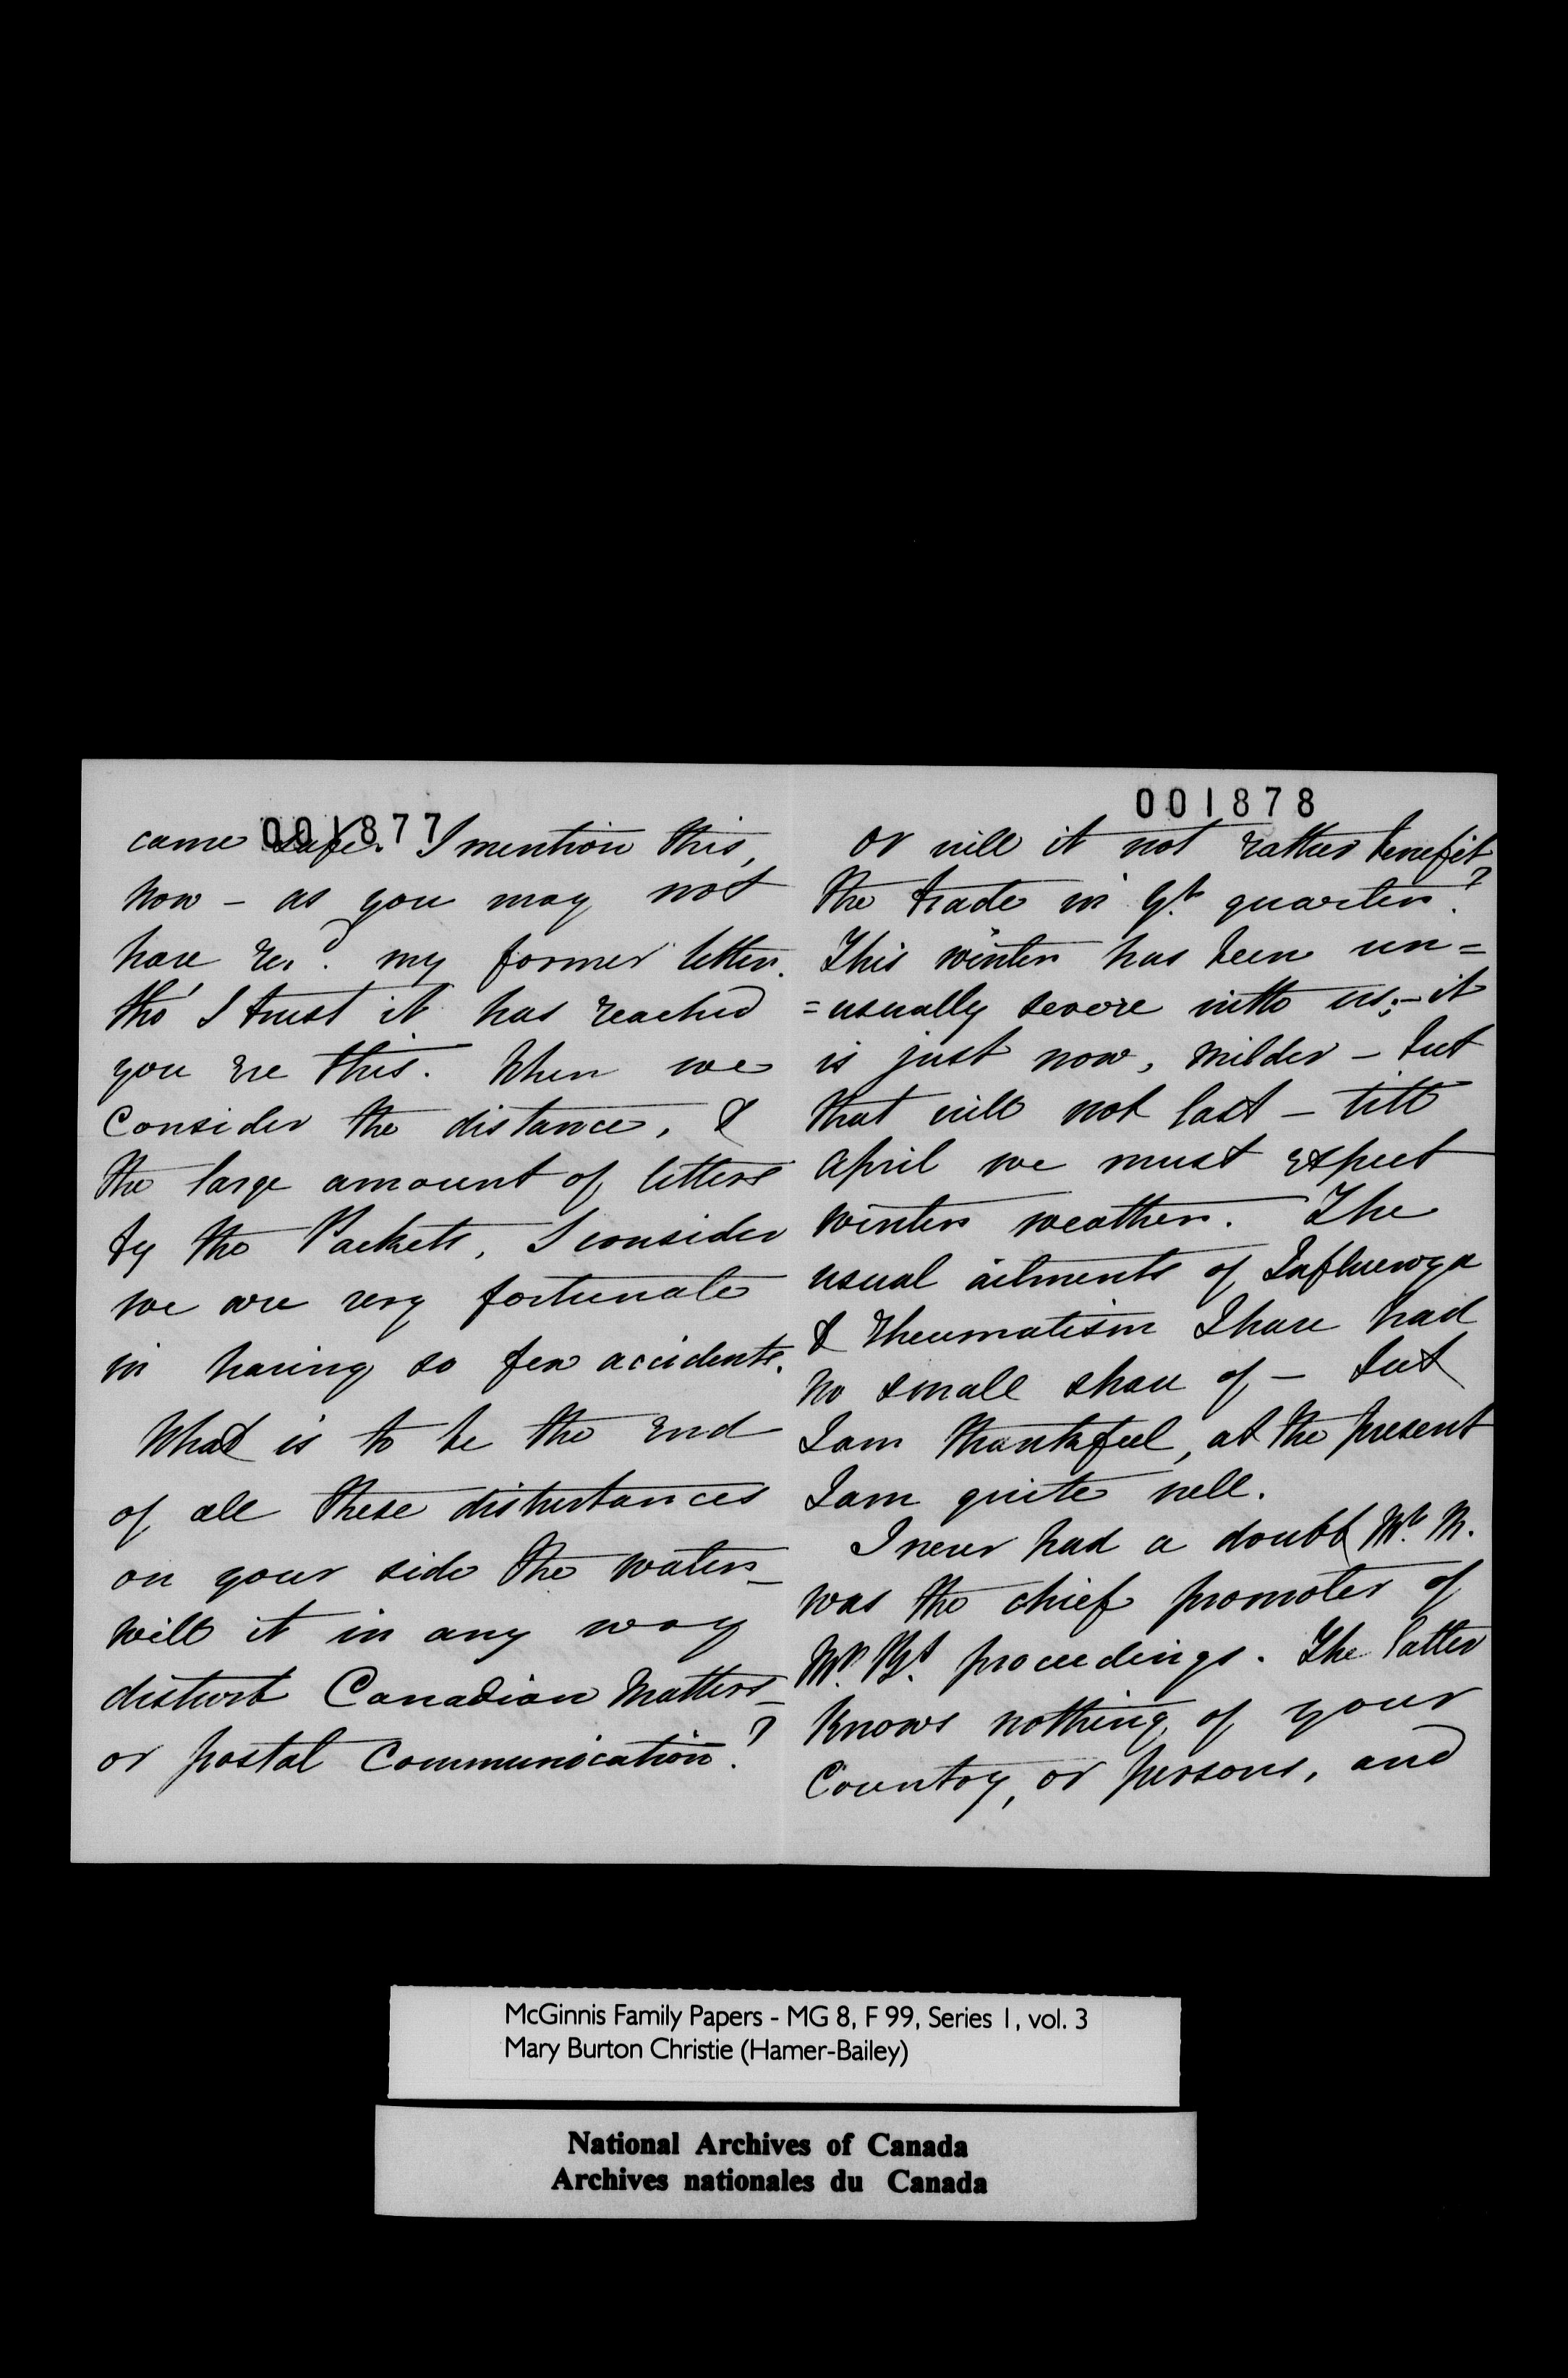 001877
came safe. I mention this,
now – as you may not
have recd. my former letter.
tho' I trust it has reached
you ere this. When we
consider the distance, &
the large amount of letters
by the Packets, I consider
we are very fortunate
in having so few accidents.
What is to be the end
of all these disturbances
on your side the water –
will it in any way
disturb Canadian Matters –
or postal communication?
001878
or will it not rather benefit
the trade in yr. quarter?
This winter has been un=
=usually severe with us; – it
is just now, milder – but
that will not last – till
April we must expect
winter weather. The
usual ailments of Influenza
& Rheumatism I have had
no small share of – but
I am thankful, at the present
I am quite well.
I never had a doubt Mr. M.
was the chief promoter of
Mr. proceedings. The latter
knows nothing of your
Country, or persons, and
McGinnis Family Papers - MG 8, F 99, Series 1, vol. 3
Mary Burton Christie (Hamer-Bailey)
National Archives of Canada
Archives nationales du Canada